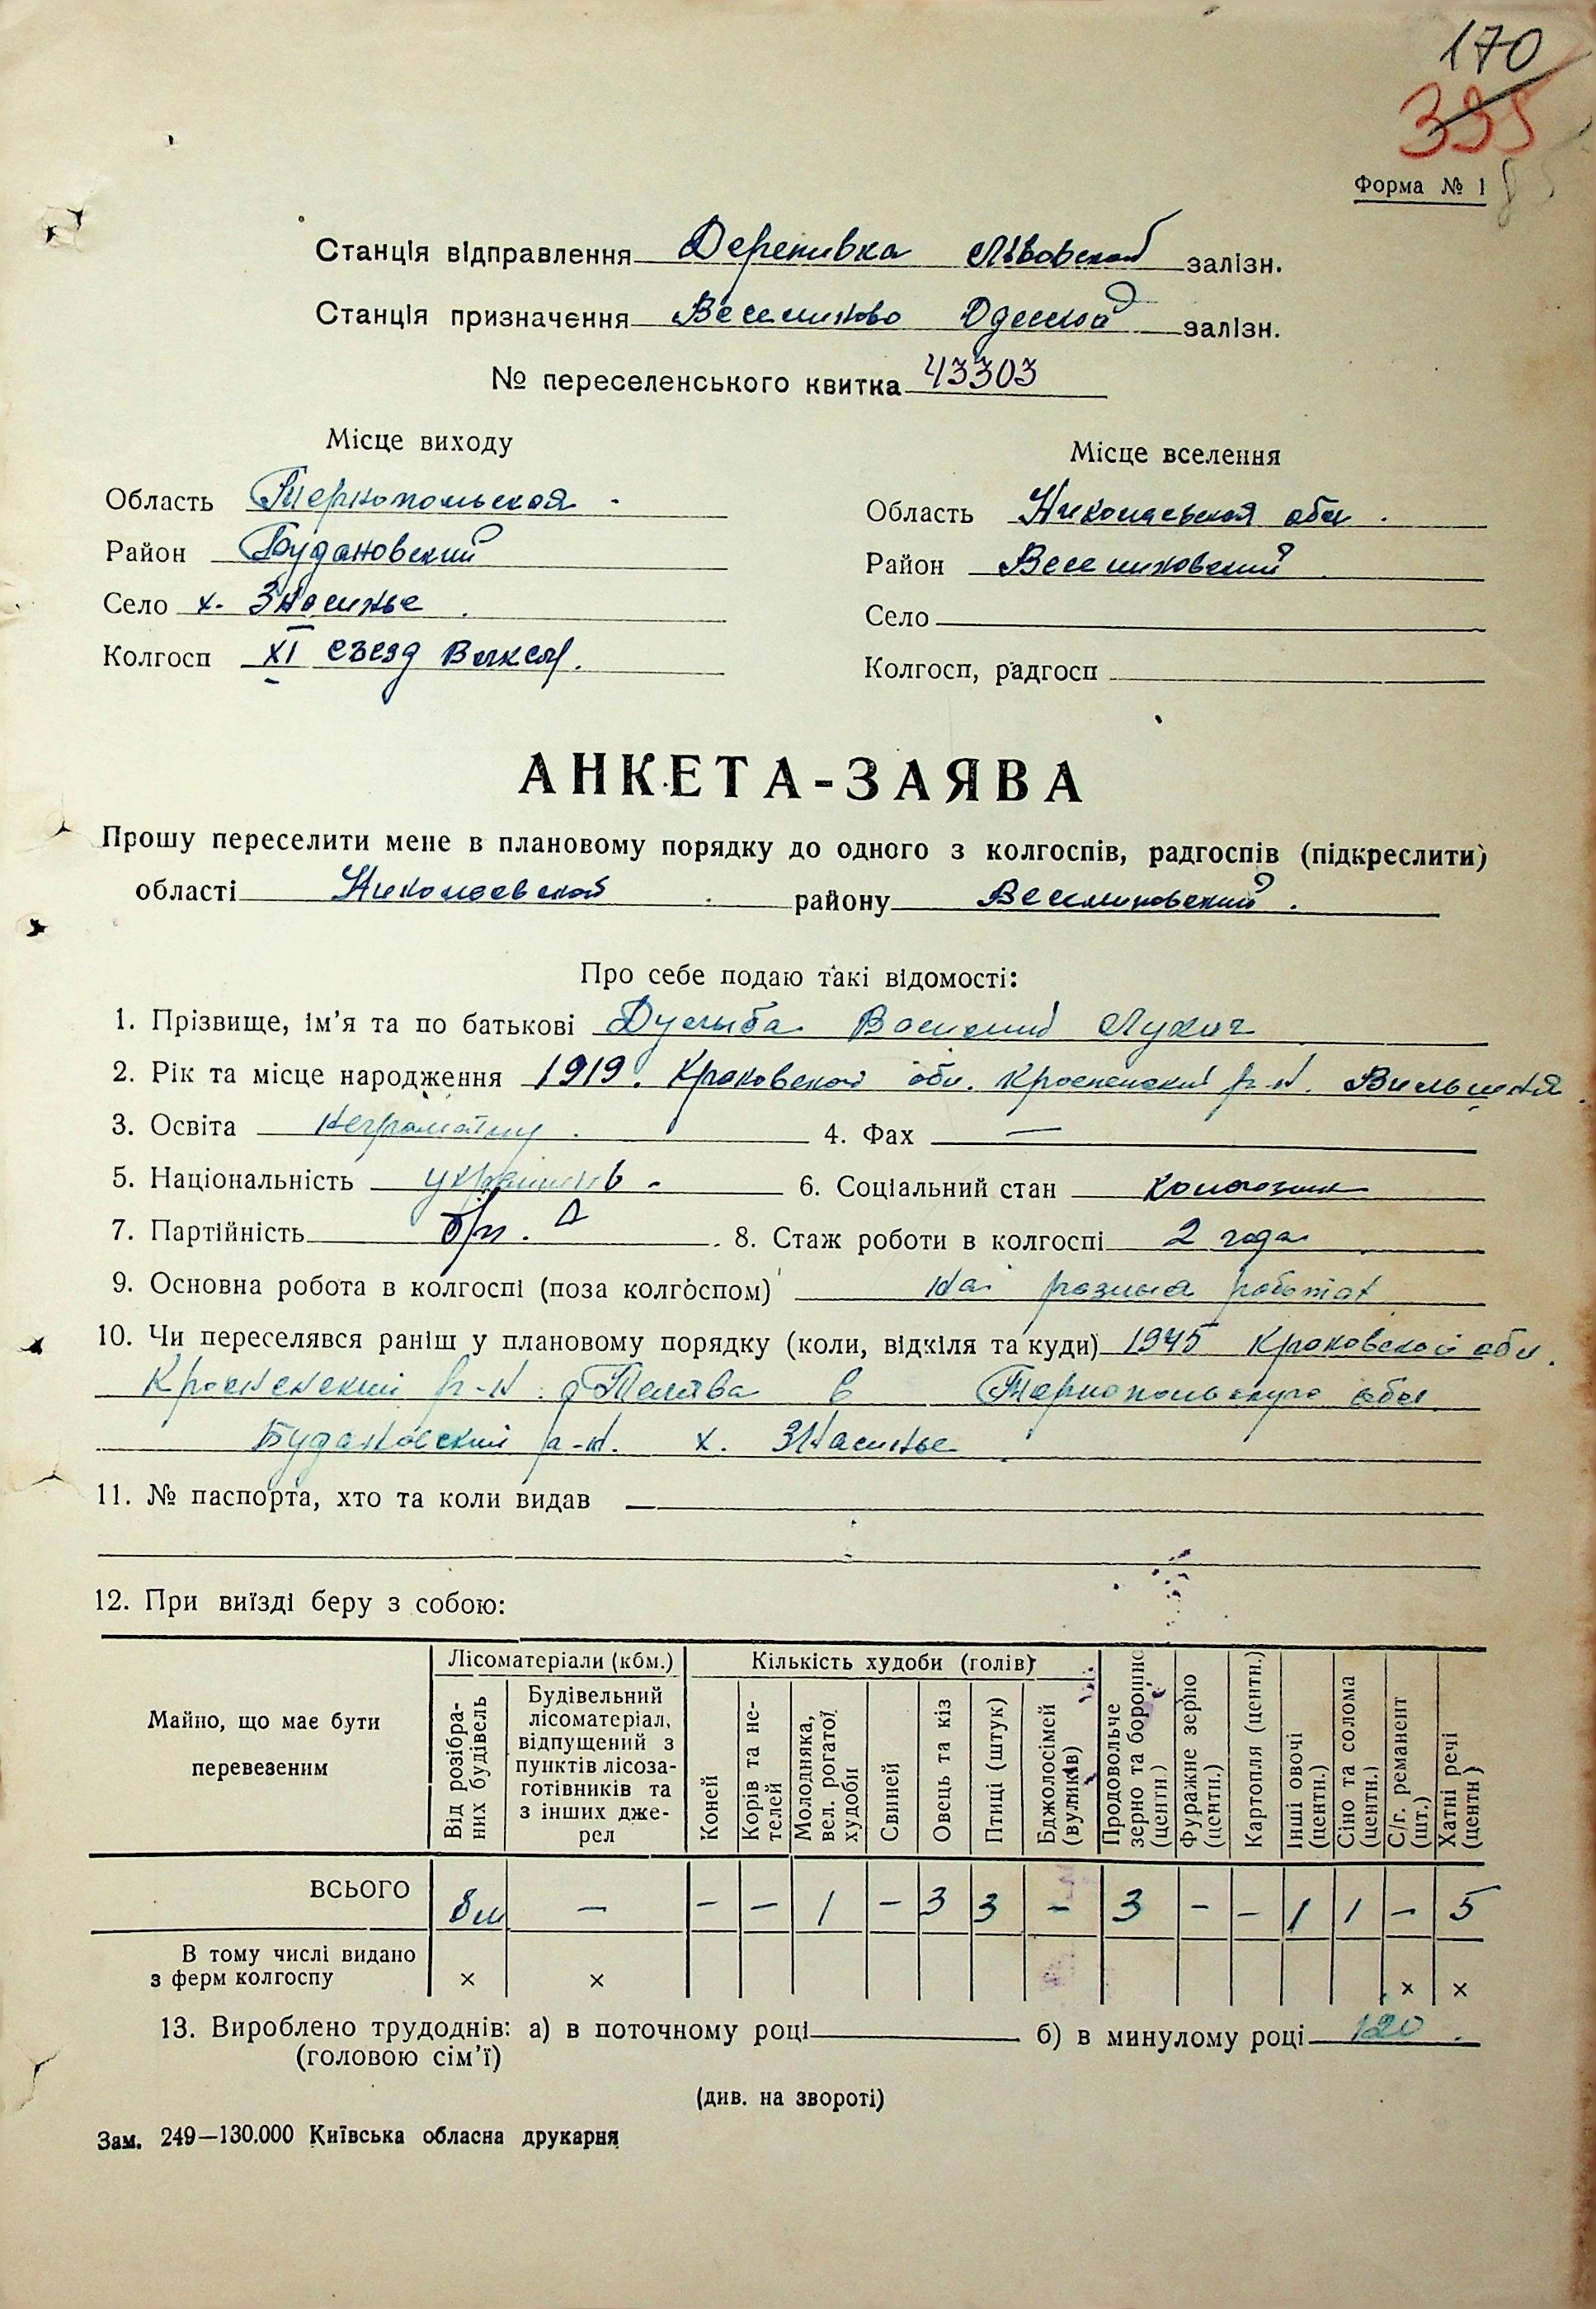 170
395
Форма № 1
Станція відправлення Деренивка Львовской залізн.
Станція призначення Веселиново Одесской залізн.
№ переселенського квитка 43303
Місце виходу
Місце вселення
Область Тернопольская
Область Николаевская обл.
Район Будановский
Район Веселиновский
Село х. Знасилье
Село
Колгосп XI съезд
Колгосп, радгосп
АНКЕТА-ЗАЯВА
Прошу переселити мене в плановому порядку до одного з колгоспів, радгоспів (підкреслити)
області Николаевской району Веселиновский.
Про себе подаю такі відомості:
1. Прізвище, ім'я та по батькові Дулыба Василий Лукич
2. Рік та місце народження 1919. Краковской обл. Кросненский р-н. Вильшня
3. Освіта неграмотный 4. Фах —
5. Національність 6. Соціальний стан колхозник
7. Партійність б/п. 8. Стаж роботи в колгоспі 2 года
9. Основна робота в колгоспі (поза колгоспом) на разных работах
10. Чи переселявся раніш у плановому порядку (коли, відкіля та куди) 1945 Краковской обл.
Кросненский р-н. в Тернопольскую обл
Будановский р-н. х. Знасилье
11. № паспорта, хто та коли видав —
12. При виїзді беру з собою:
Майно, що має бути перевезеним
Лісоматеріали (кбм.)
Кількість худоби (голів)
Від розібраних будівель
Будівельний лісоматеріал, відпущений з пунктів лісоза-готівників та з інших дже-рел
Коней
Корів та не-телей
Молодняка, вел. рогатої худоби
Свиней
Овець та кіз
Птиці (штук)
Бджолосімей (вуликів)
Продовольче зерно та борошно (центн.)
Фуражне зерно (центн.)
Картопля (центн.)
Інші овочі (центн.)
Сіно та солома (центн.)
С/г. реманент (шт.)
Хатні речі (центн)
ВСЬОГО 8м — - - 1 - 3 3 - 3 - - 1 1 - 5
В тому числі видано
з ферм колгоспу × × × ×
13. Вироблено трудоднів: а) в поточному році б) в минулому році 120.
(головою сім'ї)
(див. на звороті)
Зам. 249—130.000 Київська обласна друкарня